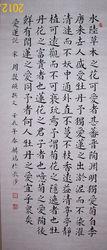 水陸草木之花可愛者甚蕃晉陶淵明獨愛菊自李
唐來世人盛愛牡丹予獨愛蓮之出淤泥而不染濯
清漣而不妖中通外直不蔓不枝香遠益清亭亭淨
植可遠觀而不可褻玩焉予謂菊花之隱逸者也牡
丹花之富貴者也蓮花之君子者也噫菊之愛陶後
鮮有聞蓮之愛同予者何人牡丹之愛宜乎眾矣
愛蓮說
2012